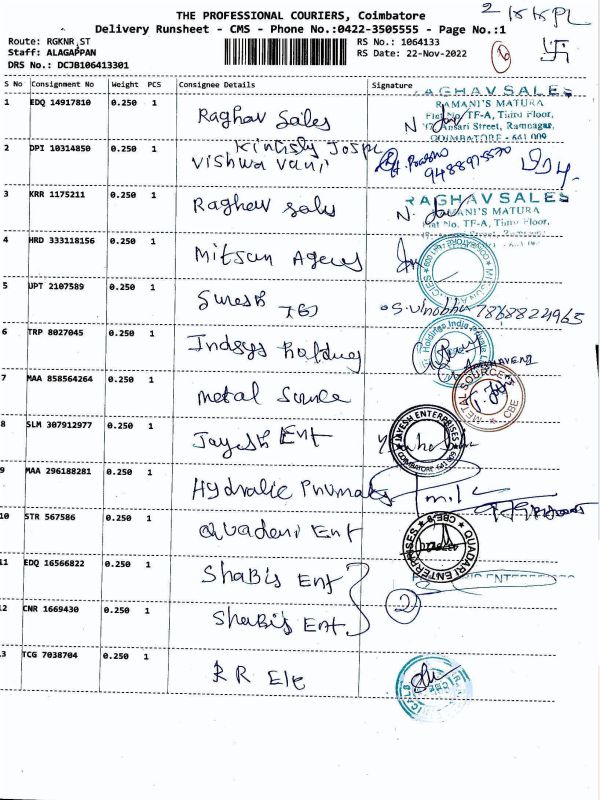 THE PROFESSIONAL COURIERS, Coimbatore
Delivery Runsheet - CMS - Phone No.:0422-3505555 - Page No.:1
Route: RGKNR_ST
Staff: ALAGAPPAN
DRS No.: DCJB106413301
RS No.: 1064133
RS Date: 22-Nov-2022
S No Consignment No Weight PCS Consignee Details Signature
1 EDQ 14917810 0.250 1 Raghav Sales
RAGHAV SALES
RAMANI'S MATURA
Flat No. TF-A, Third Floor,
Ansari Street, Ramnagar,
COIMBATORE - 641 009
2 DPI 10314850 0.250 1 Vishwa Vani
9488975570
3 KRR 1175211 0.250 1 Raghav Sales
RAGHAV SALES
RAMANI'S MATURA
Flat No. TF-A, Third Floor,
4 HRD 333118156 0.250 1 Mitsan Agencies
5 UPT 2107589 0.250 1 Suresh
78688224965
6 TRP 8027045 0.250 1 Indsys holding
Holdings India Private
7 MAA 858564264 0.250 1 metal Source
METAL SOURCE
CBE
8 SLM 307912977 0.250 1 Jayesh Ent
JAYESH ENTERPRISES
COIMBATORE 641 009
9 MAA 296188281 0.250 1 Hydralic Pnumatics
10 STR 567586 0.250 1 Quadari Ent
QUADARI ENTERPRISES
CBE-9
11 EDQ 16566822 0.250 1 Shabis Ent
ENTERPRISES
12 CNR 1669430 0.250 1 Shabis Ent
2
13 TCG 7038704 0.250 1 R R Ele